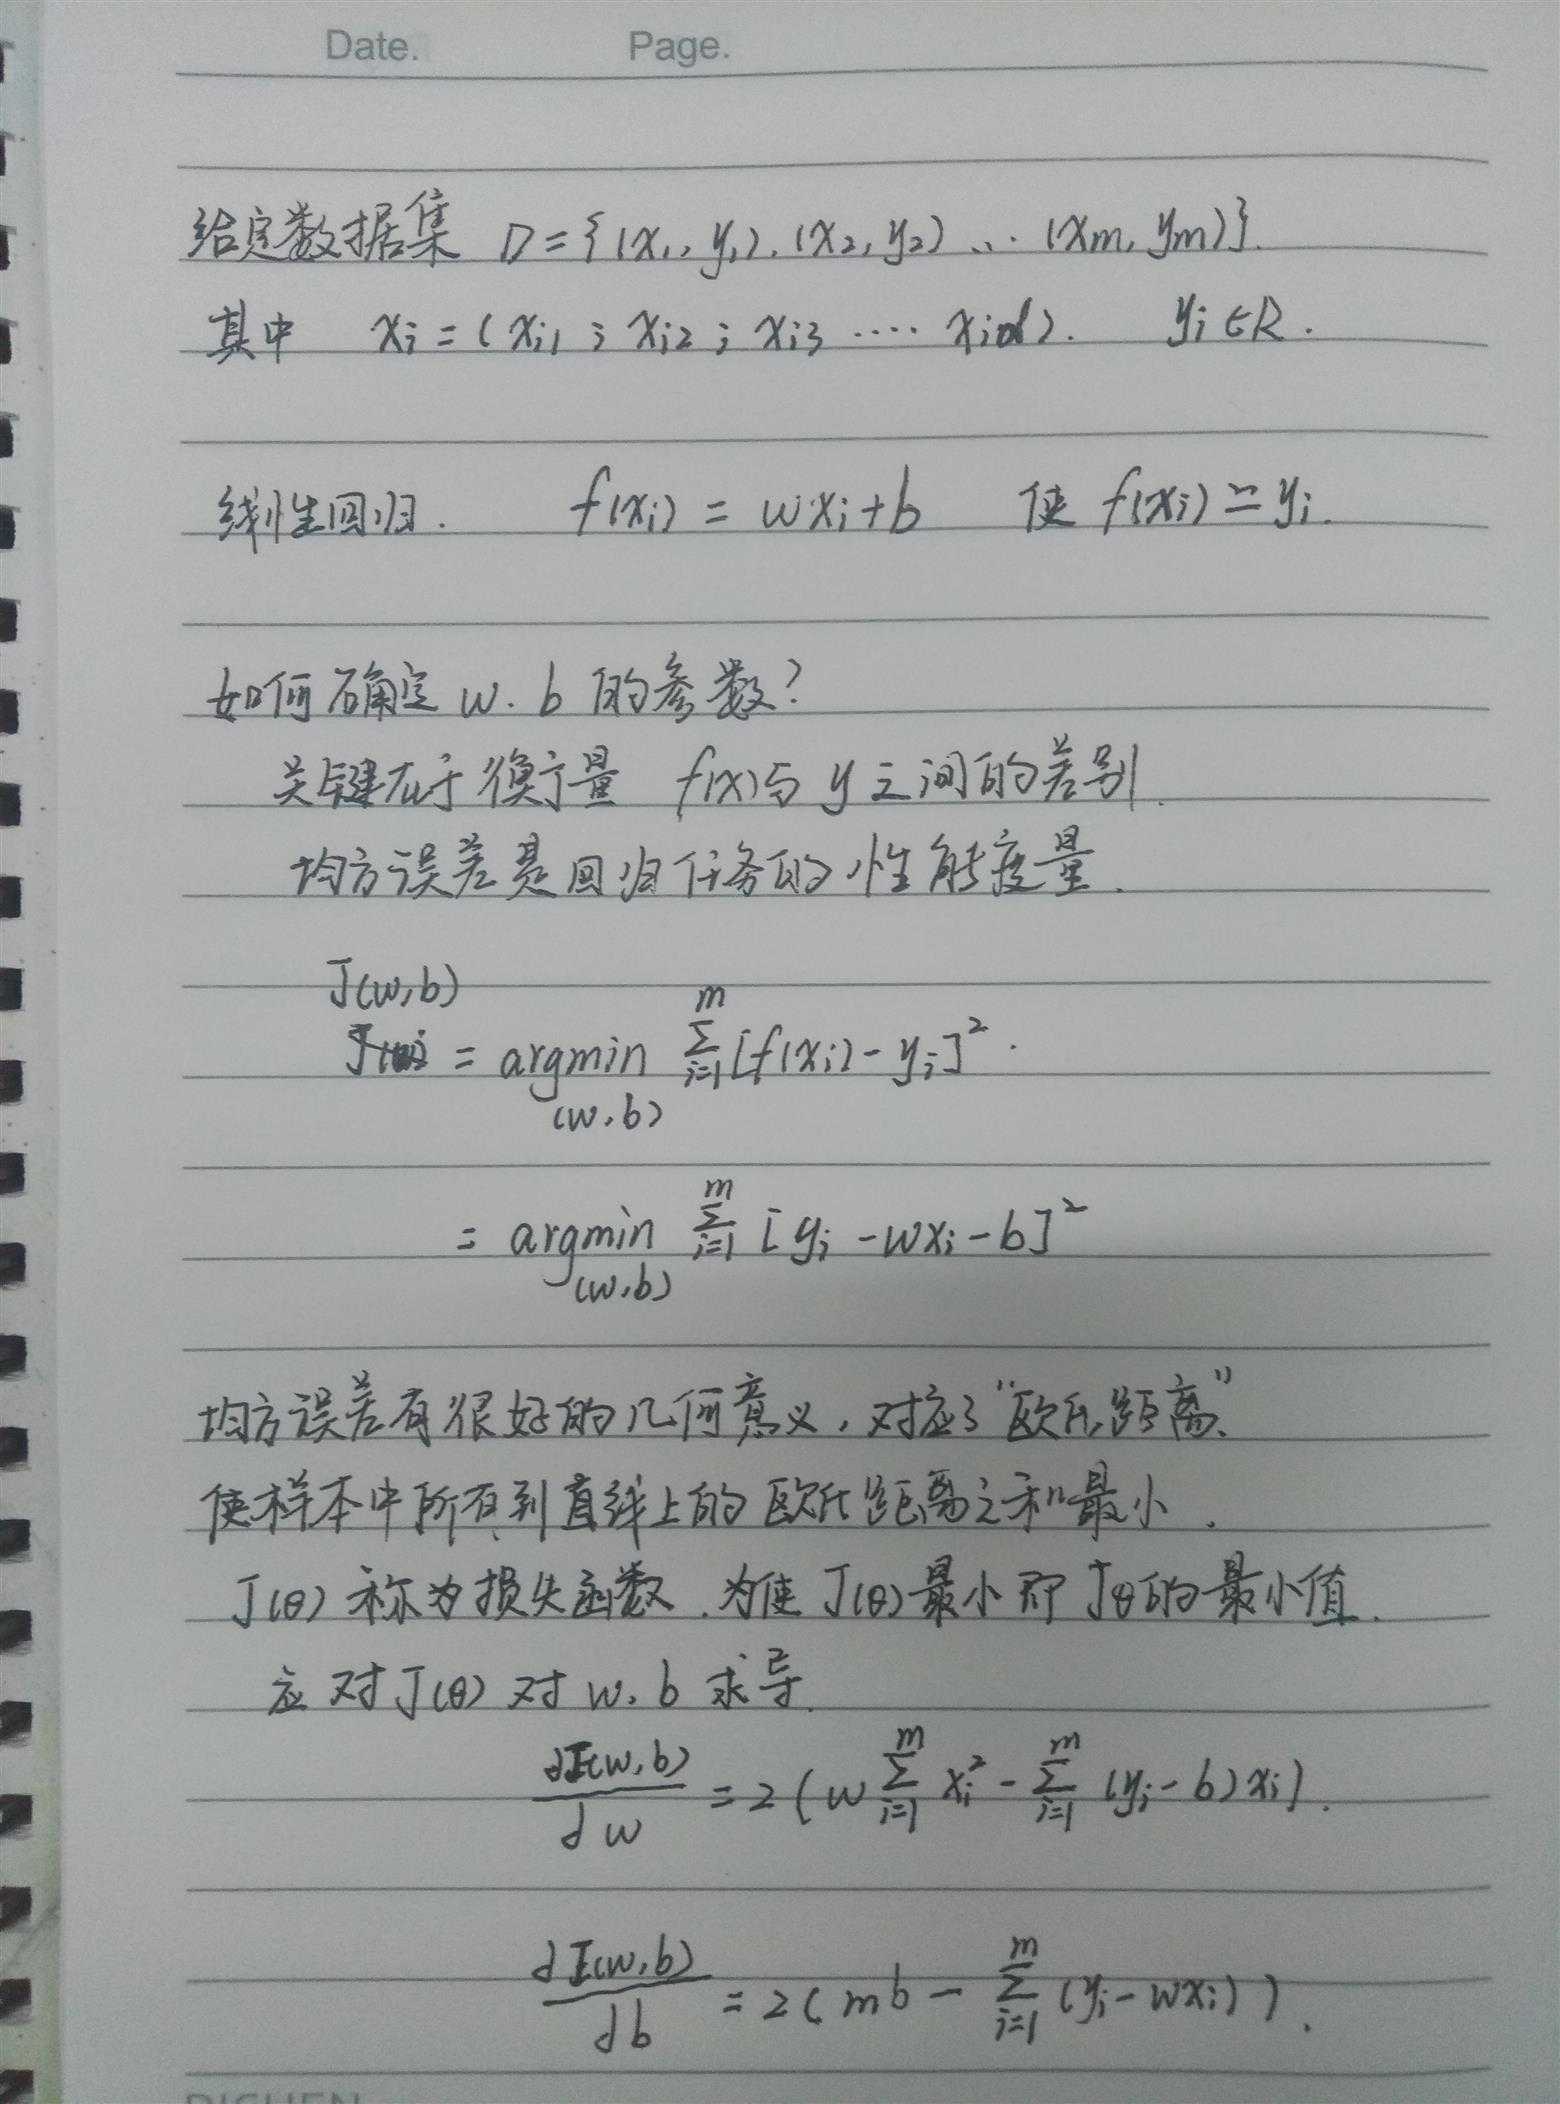 Date. Page.
给定数据集 D={(x₁,y₁),(x₂,y₂)、… (xm,ym)}.
其中 xi=(xi1；xi2；xi3 …· xid). yi∈R.
线性回归. f(xi)=wxi+b 使 f(xi)≃yi.
如何确定 w. b 的参数?
关键在于衡量 f(x)与 y 之间的差别.
均方误差是回归任务的性能度量.
J(w,b)
= argmin(w,b) Σ(i=1→m) [f(xi)-yi]².
= argmin(w,b) Σ(i=1→m) [yi-wxi-b]²
均方误差有很好的几何意义,对应了"欧氏距离".
使样本中所有到直线上的欧氏距离之和最小.
J(θ)称为损失函数.为使J(θ)最小即Jθ的最小值.
应对J(θ)对 w. b 求导.
∂E(w,b)/∂w = 2(w Σ(i=1→m) xi² - Σ(i=1→m) (yi-b)xi).
∂E(w,b)/∂b = 2(mb - Σ(i=1→m) (yi-wxi)).